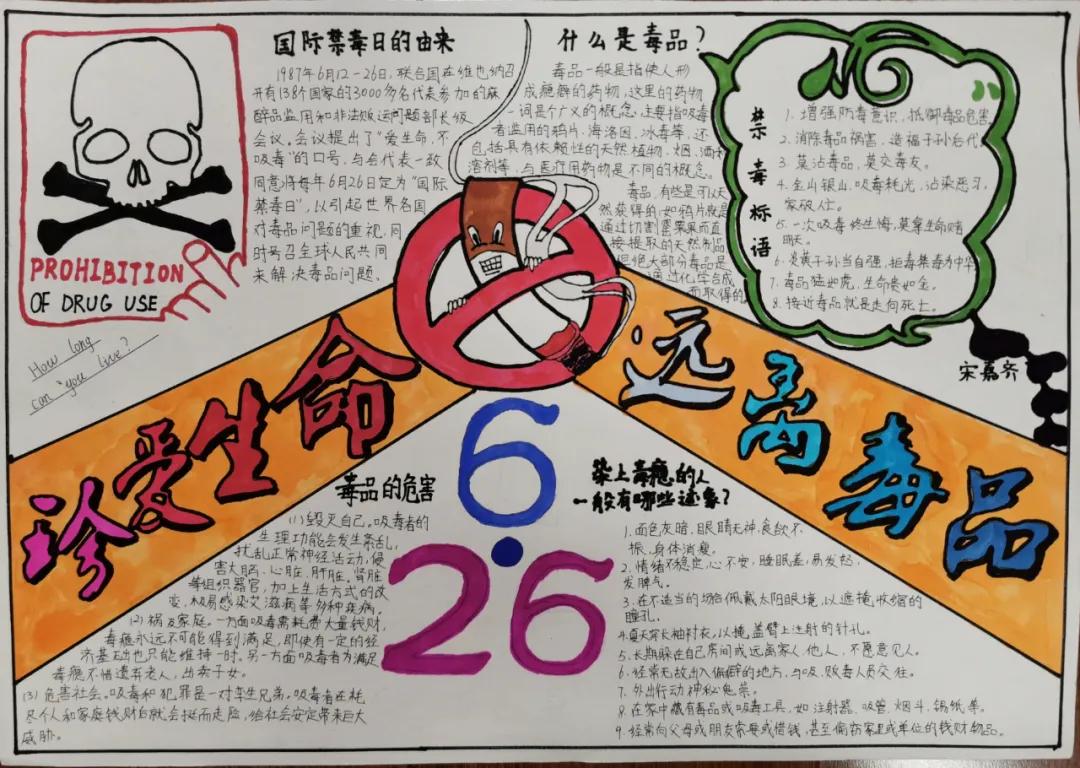 PROHIBITION
OF DRUG USE
How long
can you live?
国际禁毒日的由来
1987年6月12-26日,联合国在维也纳召
开有138个国家的3000多名代表参加的麻
醉品滥用和非法贩运问题部长级
会议。会议提出了“爱生命,不
吸毒”的口号,与会代表一致
同意将每年6月26日定为“国际
禁毒日”,以引起世界各国
对毒品问题的重视,同
时号召全球人民共同
来解决毒品问题。
什么是毒品?
毒品一般是指使人形
成瘾癖的药物,这里的药物
一词是个广义的概念,主要指吸毒
者滥用的鸦片、海洛因、冰毒等,还
包括具有依赖性的天然植物、烟、酒和
溶剂等,与医疗用药物是不同的概念。
毒品,有些是可以天
然获得的,如鸦片就是
通过切割罂粟果而直
接提取的天然制品
但绝大部分毒品是
通过化学合成
而取得的
禁毒标语
1. 增强防毒意识,抵御毒品危害
2. 消除毒品祸害,造福子孙后代
3. 莫沾毒品,莫交毒友。
4. 金山银山,吸毒耗光,沾染恶习,
家破人亡。
5. 一次吸毒终生悔,莫拿生命赌
明天。
6. 炎黄子孙当自强,拒毒禁毒为中华
7. 毒品猛如虎,生命贵如金。
8. 接近毒品就是走向死亡。
宋嘉齐
珍爱生命
远离毒品
6
26
毒品的危害
(1)毁灭自己。吸毒者的
生理功能会发生紊乱,
扰乱正常神经活动,侵
害大脑、心脏、肝脏、肾脏
等组织器官,加上生活方式的改
变,极易感染艾滋病等多种疾病。
(2)祸及家庭。一方面吸毒需耗费大量钱财,
毒瘾永远不可能得到满足,即使有一定的经
济基础也只能维持一时。另一方面吸毒者为满足
毒瘾不惜遗弃老人,出卖子女。
(3)危害社会。吸毒和犯罪是一对孪生兄弟。吸毒者在耗
尽个人和家庭钱财后就会铤而走险,给社会安定带来巨大
威胁。
染上毒瘾的人
一般有哪些迹象?
1. 面色灰暗、眼睛无神、食欲不
振、身体消瘦。
2. 情绪不稳定,心不安,睡眠差,易发怒,
发脾气。
3. 在不适当的场合佩戴太阳眼境,以遮掩收缩的
瞳孔。
4. 夏天穿长袖衬衣,以掩盖臂上注射的针孔。
5. 长期躲在自己房间或远离家人、他人,不愿意见人。
6. 经常无故出入偏僻的地方,与吸、贩毒人员交往。
7. 外出行动神秘鬼祟。
8. 在家中藏有毒品或吸毒工具,如注射器、吸管、烟斗、锡纸等。
9. 经常向父母或朋友索要或借钱,甚至偷窃家里或单位的钱财物品。